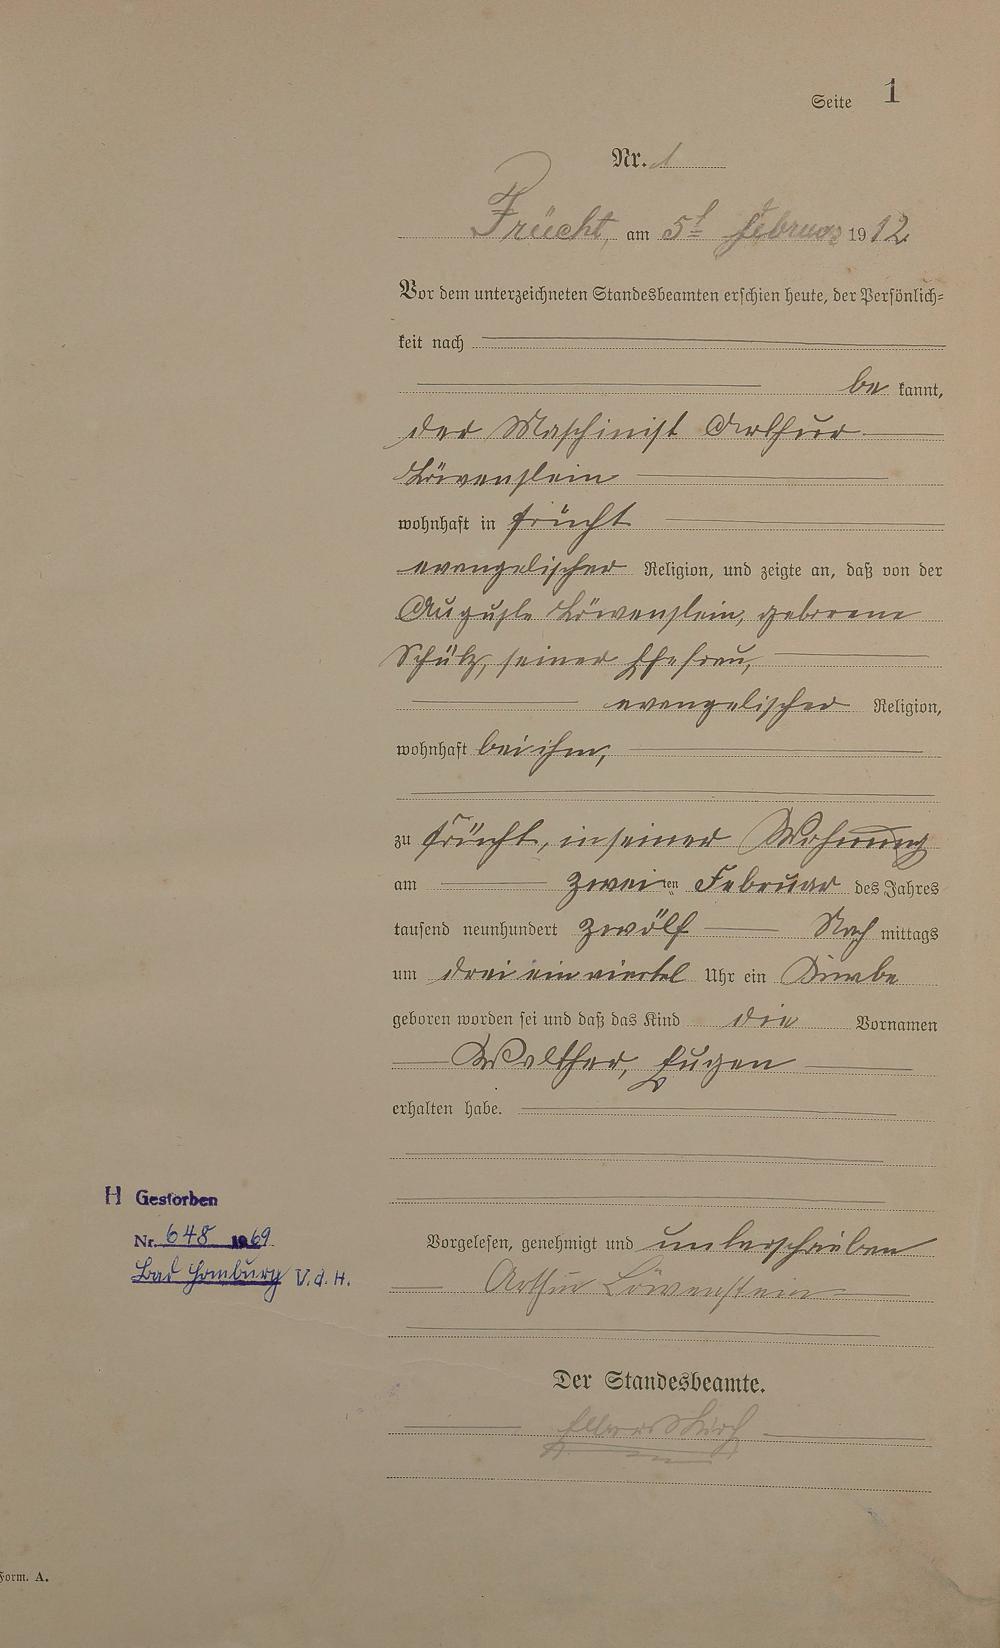 Seite 1
Nr. 1
Frücht, am 5t Februar 1912.
Vor dem unterzeichneten Standesbeamten erschien heute, der Persönlich=
keit nach
be kannt,
der Maschinist Arthur
Löwenstein
wohnhaft in Frücht
evangelischer Religion, und zeigte an, daß von der
Auguste Löwenstein, geborene
Schütz, seiner Ehefrau,
evangelischer Religion,
wohnhaft bei ihm,
zu Frücht, in seiner Wohnung
am zweiten Februar des Jahres
tausend neunhundert zwölf Nach mittags
um drei ein viertel Uhr ein Knabe
geboren worden sei und daß das Kind die Vornamen
Walther, Eugen
erhalten habe.
H Gestorben
Nr. 648 1969
Bad Homburg V.d.H.
Vorgelesen, genehmigt und unterschrieben
Arthur Löwenstein
Der Standesbeamte.
Form. A.